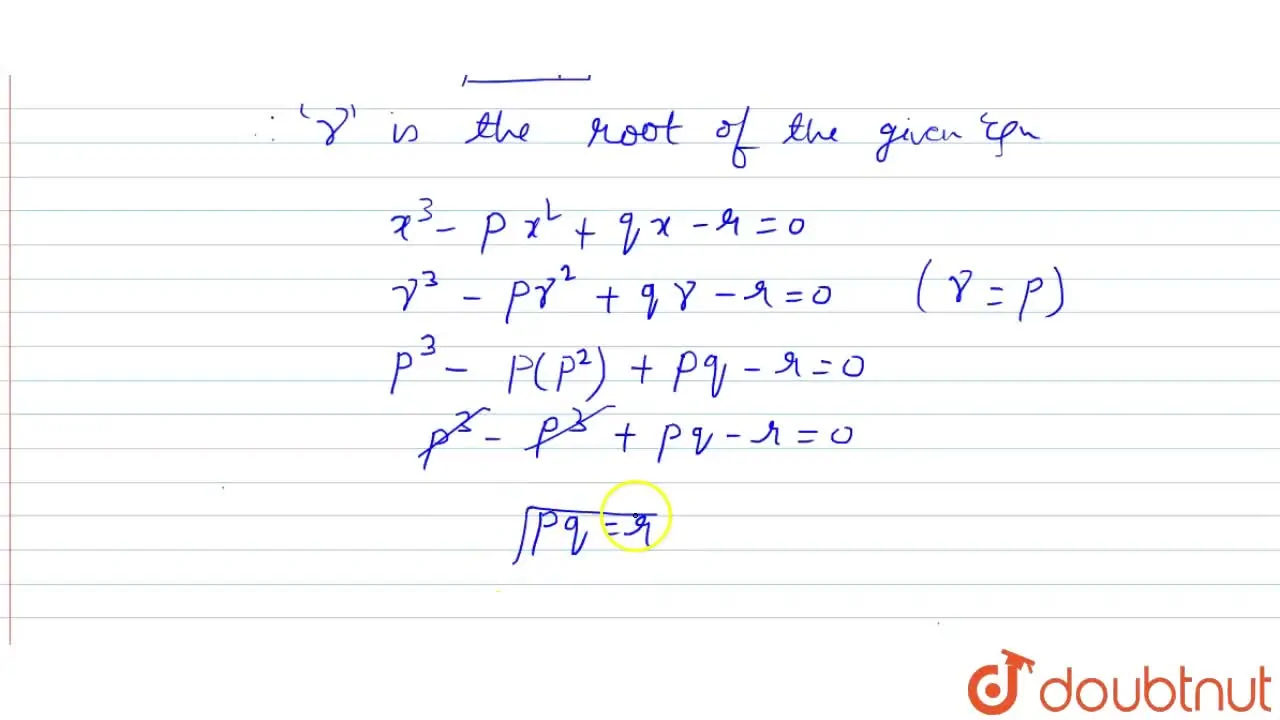 ∴ 'γ' is the root of the given eqn
x³ - p x² + q x - r = 0
γ³ - pγ² + q γ - r = 0 (γ = p)
p³ - p(p²) + pq - r = 0
p³ - p³ + pq - r = 0
pq = r
doubtnut